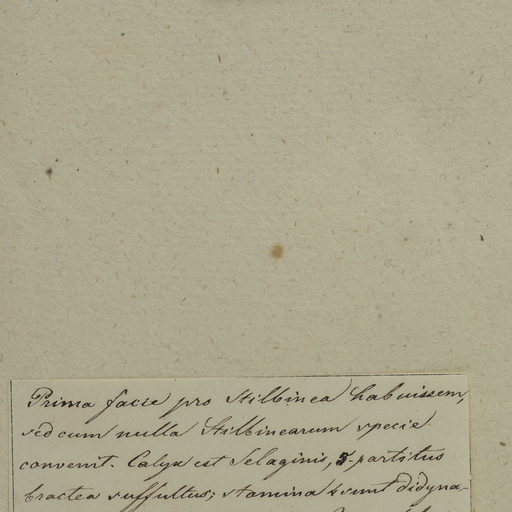 Prima facie pro Stilbinea habuissem,
sed cum nulla Stilbinearum specie
convenit. Calyx est Selaginis, 5-partitus
bractea suffultus; stamina 4 sunt didyna-